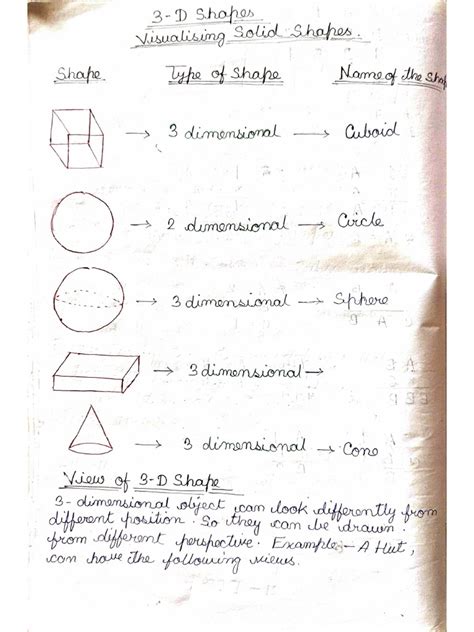 3-D Shapes
Visualising Solid Shapes.
Shape Type of Shape Name of the Shap
→ 3 dimensional → Cuboid
→ 2 dimensional → Circle
→ 3 dimensional → Sphere
→ 3 dimensional →
→ 3 dimensional → Cone
View of 3-D Shape
3-dimensional object can look differently from
different position. So they can be drawn
from different perspective. Example - A Hut,
can have the following views.